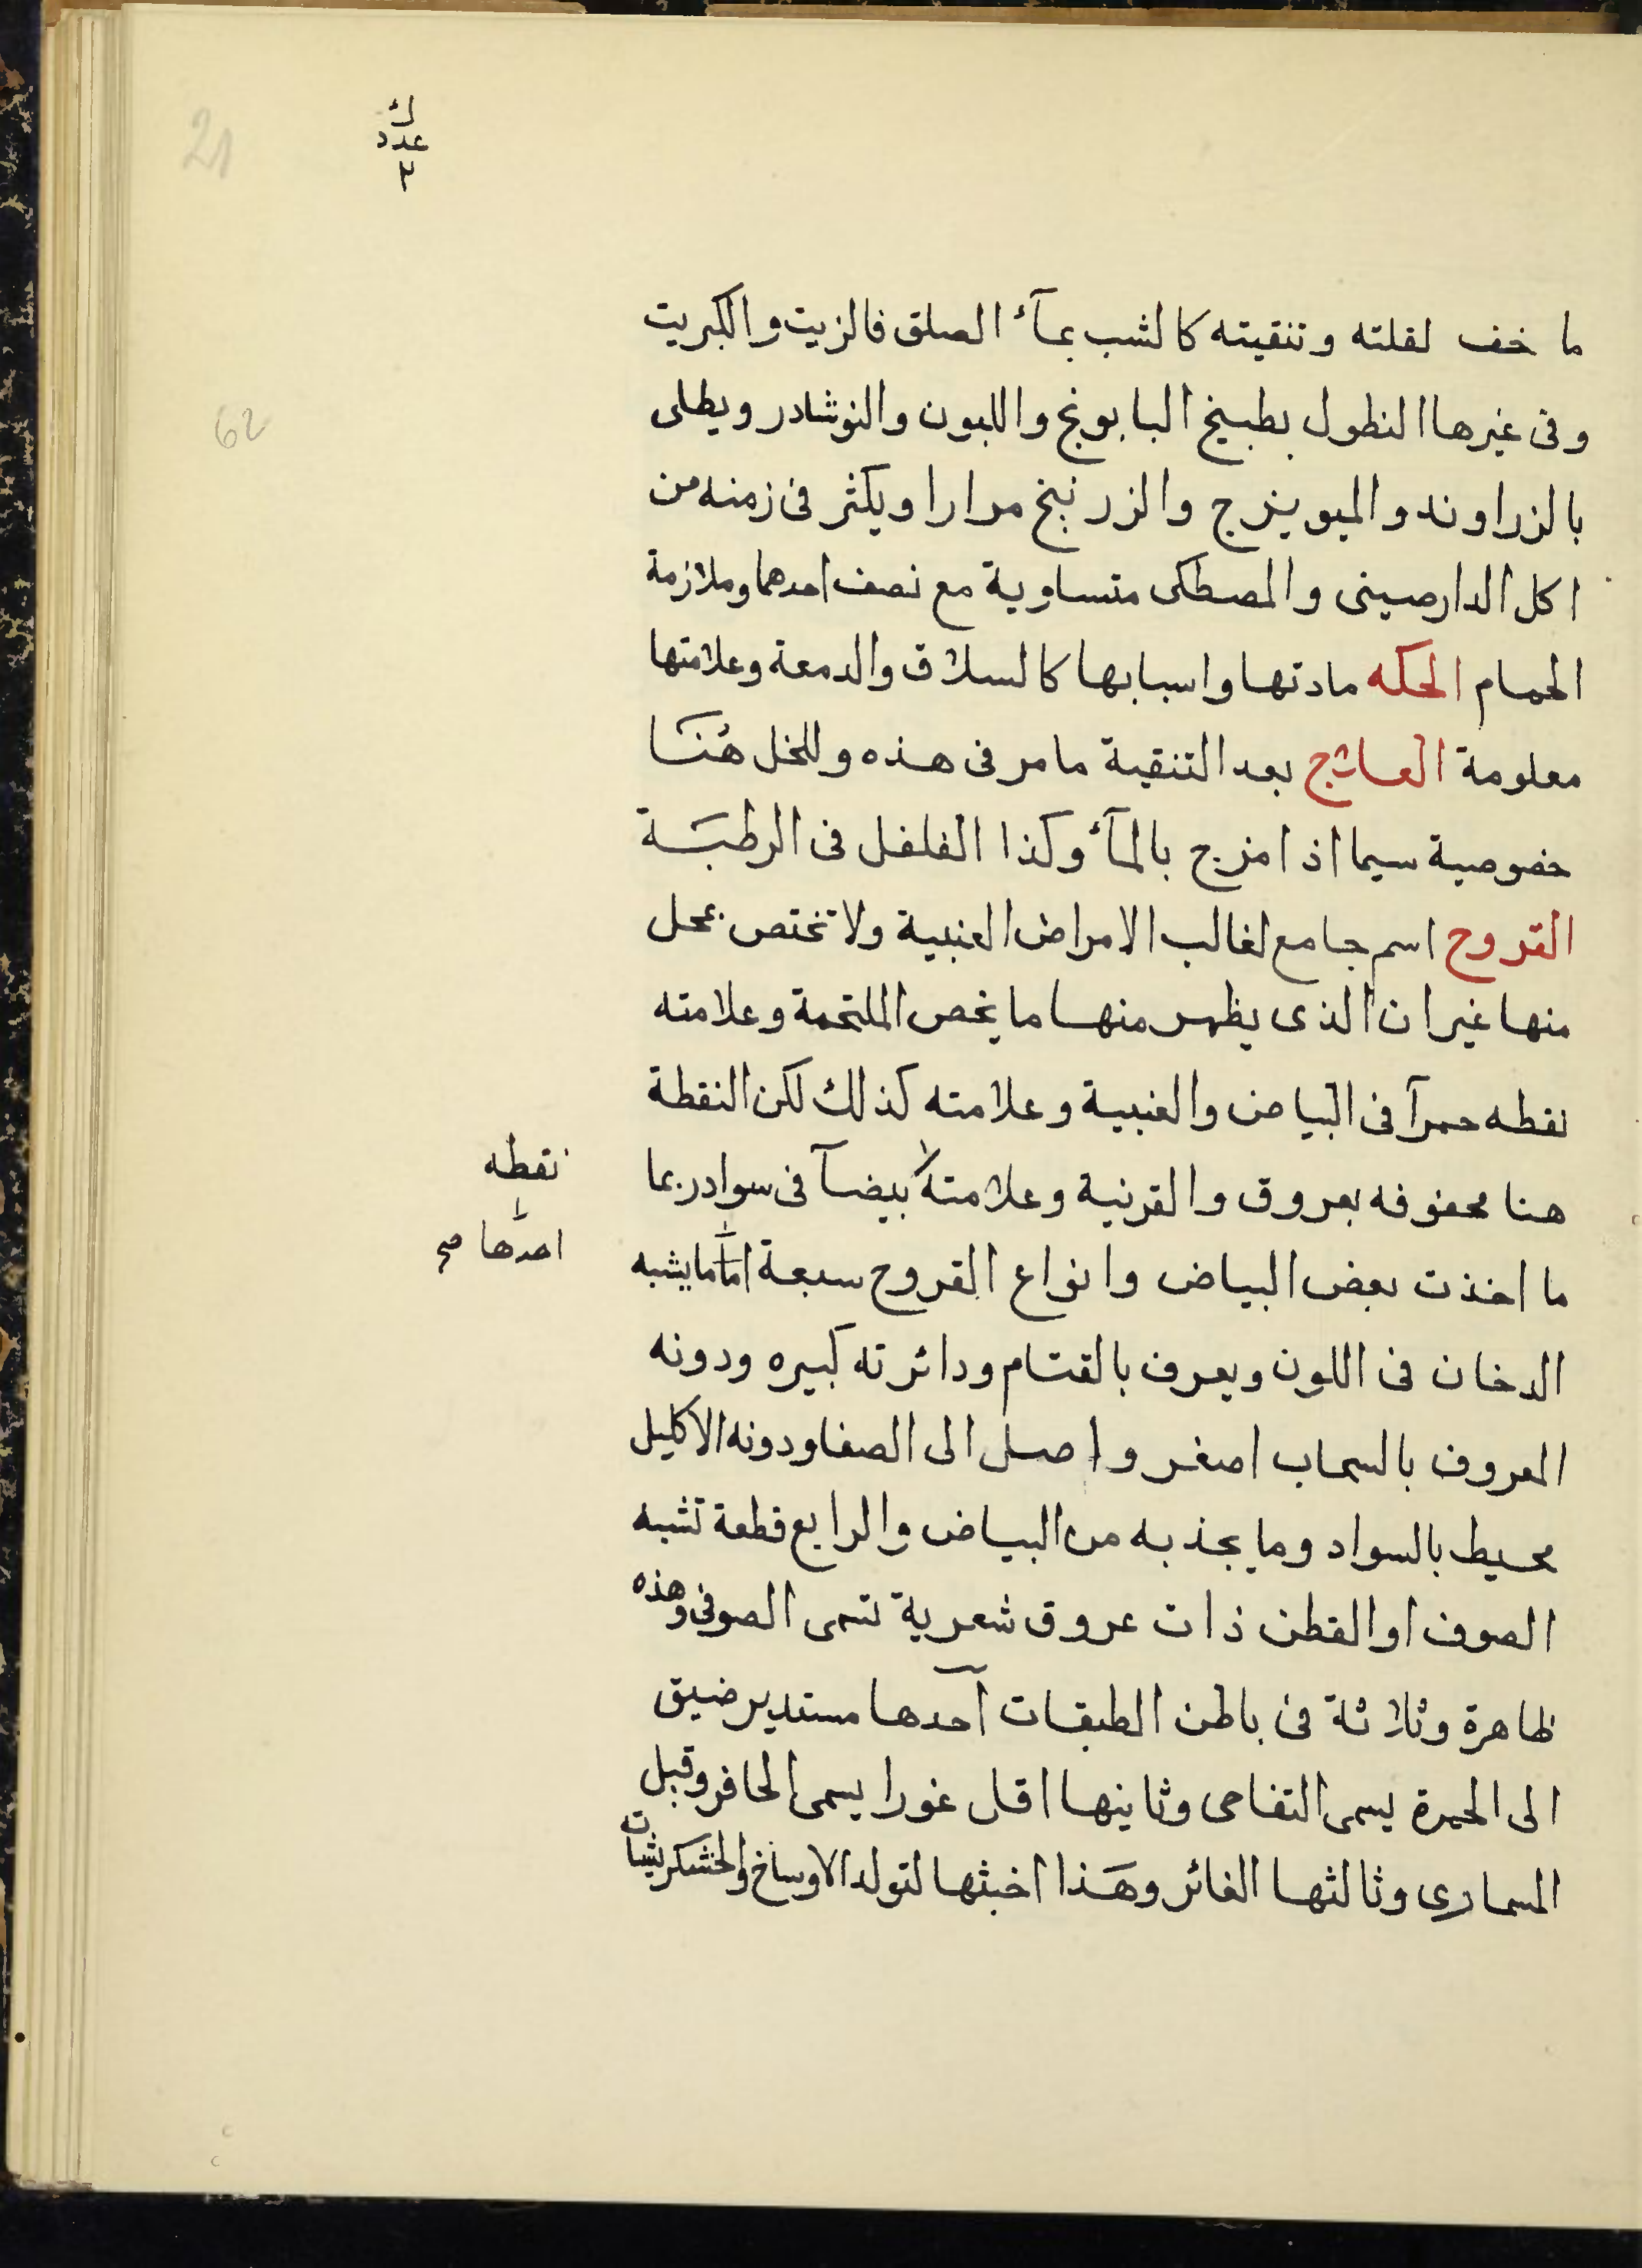 ك
عدد
٢
21
62
ما خف لقلته وتنقيته كالشب بمآء الصلق فالزيت والكبريت
وفى غيرها النطول بطبيخ البابونج والليون والنوشادر ويطلى
بالزراوند والميويزج والزرنيخ مرارا ويكثر فى زمنه من
اكل الدارصينى والمصطكى متساوية مع نصف احدهما وملازمة
الحمام الحكه مادتها واسبابها كالسلاق والدمعة وعلامتها
معلومة العلاج بعد التنقية مامر فى هذه وللخل هنا
خصوصية سيما اذا مزج بالمآء وكذا الفلفل فى الرطبة
القروح اسم جامع لغالب الامراض العنبية ولا تختص بمحل
منها غير ان الذى يظهر منها ما يخص الملتحمة وعلامته
نقطه حمرآ فى البياض والعنبية وعلامته كذلك لكن النقطة
هنا محفوفه بعروق والقرنية وعلامته بيضآ فى سواد ربما
نقطه
ما اخذت بعض البياض وانواع القروح سبعة اما ما يشبه
احدها صح
الدخان فى اللون ويعرف بالقتام ودائرته كبيره ودونه
المعروف بالسحاب اصغر واصل الى الصفا ودونه الاكليل
محيط بالسواد وما يجذبه من البياض والرابع قطعة تشبه
الصوف او القطن ذات عروق شعرية تسمى الصوفى وهذه
ظاهرة وثلاثة فى باطن الطبقات آحدها مستدير ضيق
الى الحمرة يسمى التفاحى وثانيها اقل غورا يسمى الحافر وقيل
المسمارى وثالثها الغائر وهذا اخبثها لتولد الاوساخ والخشكريشات